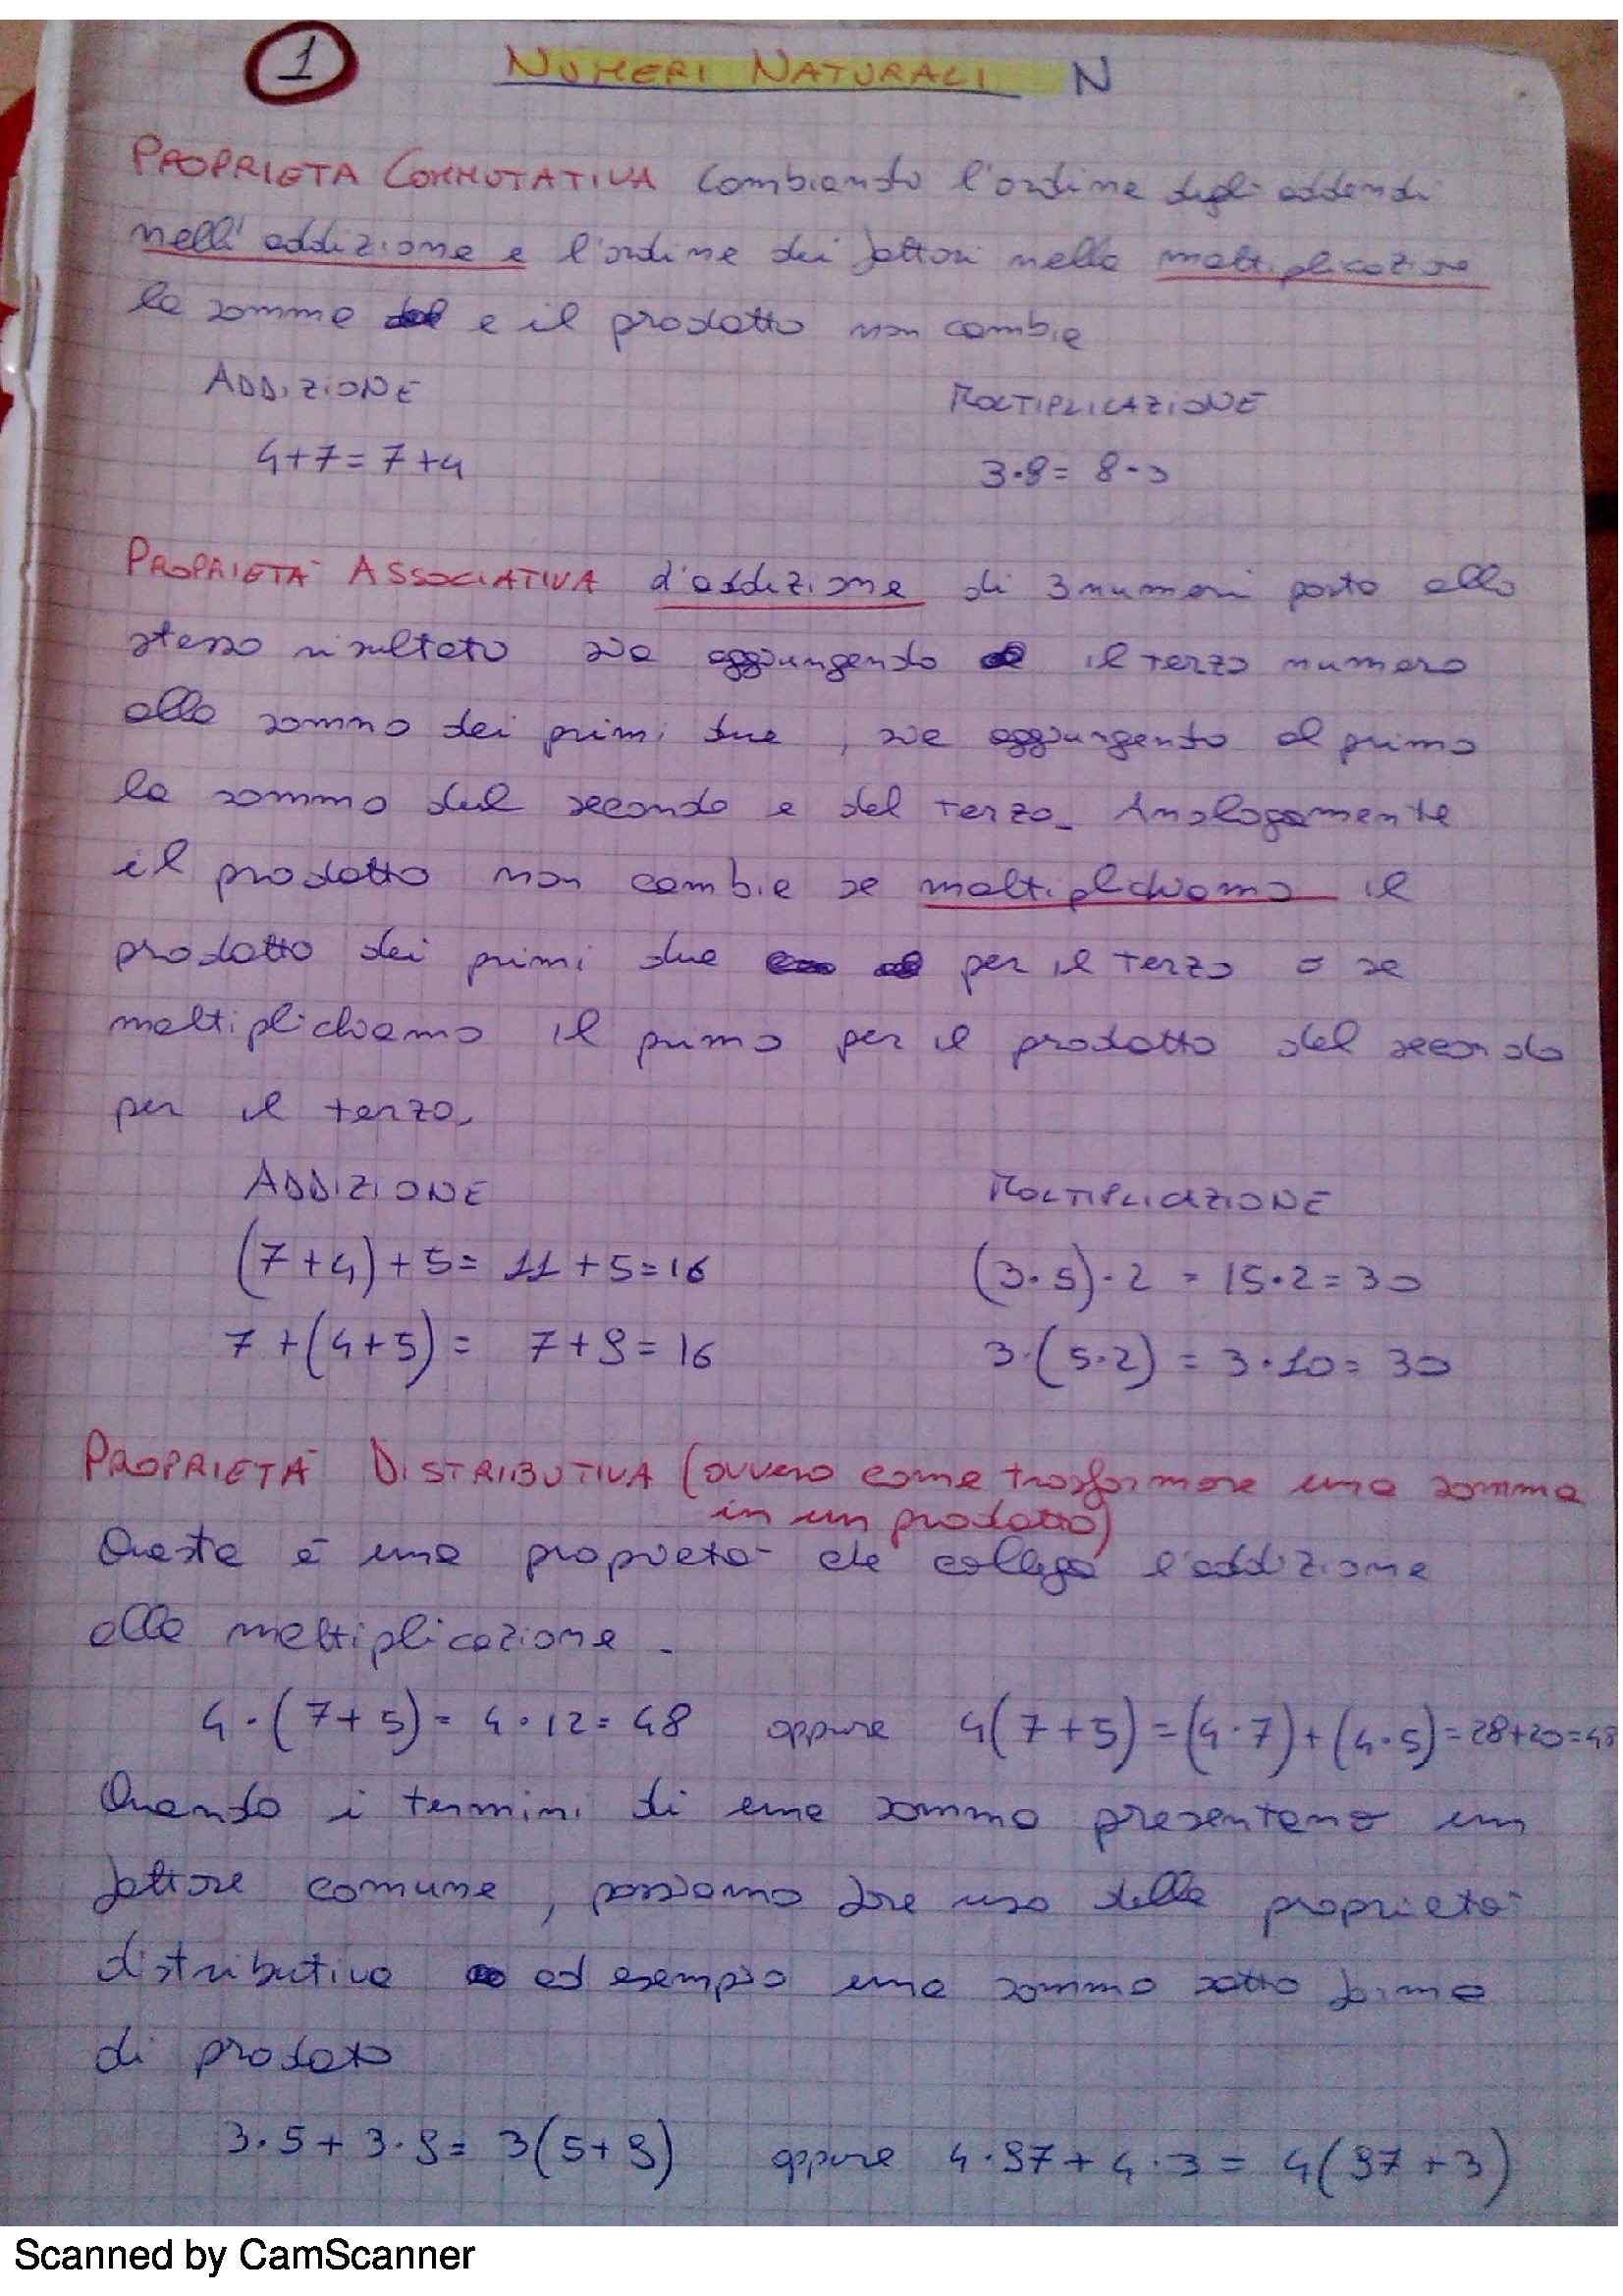 1 NUMERI NATURALI N
PROPRIETA COMMUTATIVA Cambiando l'ordine degli addendi
nell'addizione e l'ordine dei fattori nella moltiplicazione
la somma e il prodotto non cambia
ADDIZIONE MOLTIPLICAZIONE
4+7=7+4 3·8= 8·3
PROPRIETÀ ASSOCIATIVA d'addizione di 3 numeri porta allo
stesso risultato sia aggiungendo il terzo numero
alla somma dei primi due, sia aggiungento al primo
la somma del secondo e del terzo. Analogamente
il prodotto non cambia se moltiplichiamo il
prodotto dei primi due per il terzo o se
moltiplichiamo il primo per il prodotto del secondo
per il terzo.
ADDIZIONE MOLTIPLICAZIONE
(7+4)+5= 11+5=16 (3·5)·2 = 15·2=30
7+(4+5)= 7+9=16 3·(5·2) = 3·10= 30
PROPRIETÀ DISTRIBUTIVA (ovvero come trasformare una somma
in un prodotto)
Questa è una proprietà che collega l'addizione
alla moltiplicazione.
4·(7+5)= 4·12=48 oppure 4(7+5)=(4·7)+(4·5)=28+20=48
Quando i termini di una somma presentano un
fattore comune, possiamo fare uso della proprietà
distributiva ad esempio una somma sotto forma
di prodoto
3·5+3·9= 3(5+9) oppure 4·97+4·3= 4(97+3)
Scanned by CamScanner